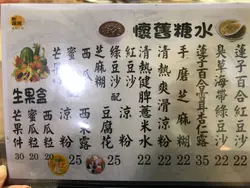 懷舊糖水
蓮子百合雪耳杏仁露
臭草海帶綠豆沙
蓮子百合紅豆沙
手磨芝麻糊
清熱爽滑涼粉
清熱健脾薏米水
紅豆沙
綠豆沙
芝麻糊
配
豆腐花
涼粉
西瓜
蜜瓜
芒果
西米露
涼粉
生果盒
西瓜粒
蜜瓜粒
芒果件
22 22 22 22 22 22 25 25 25
20 20 30